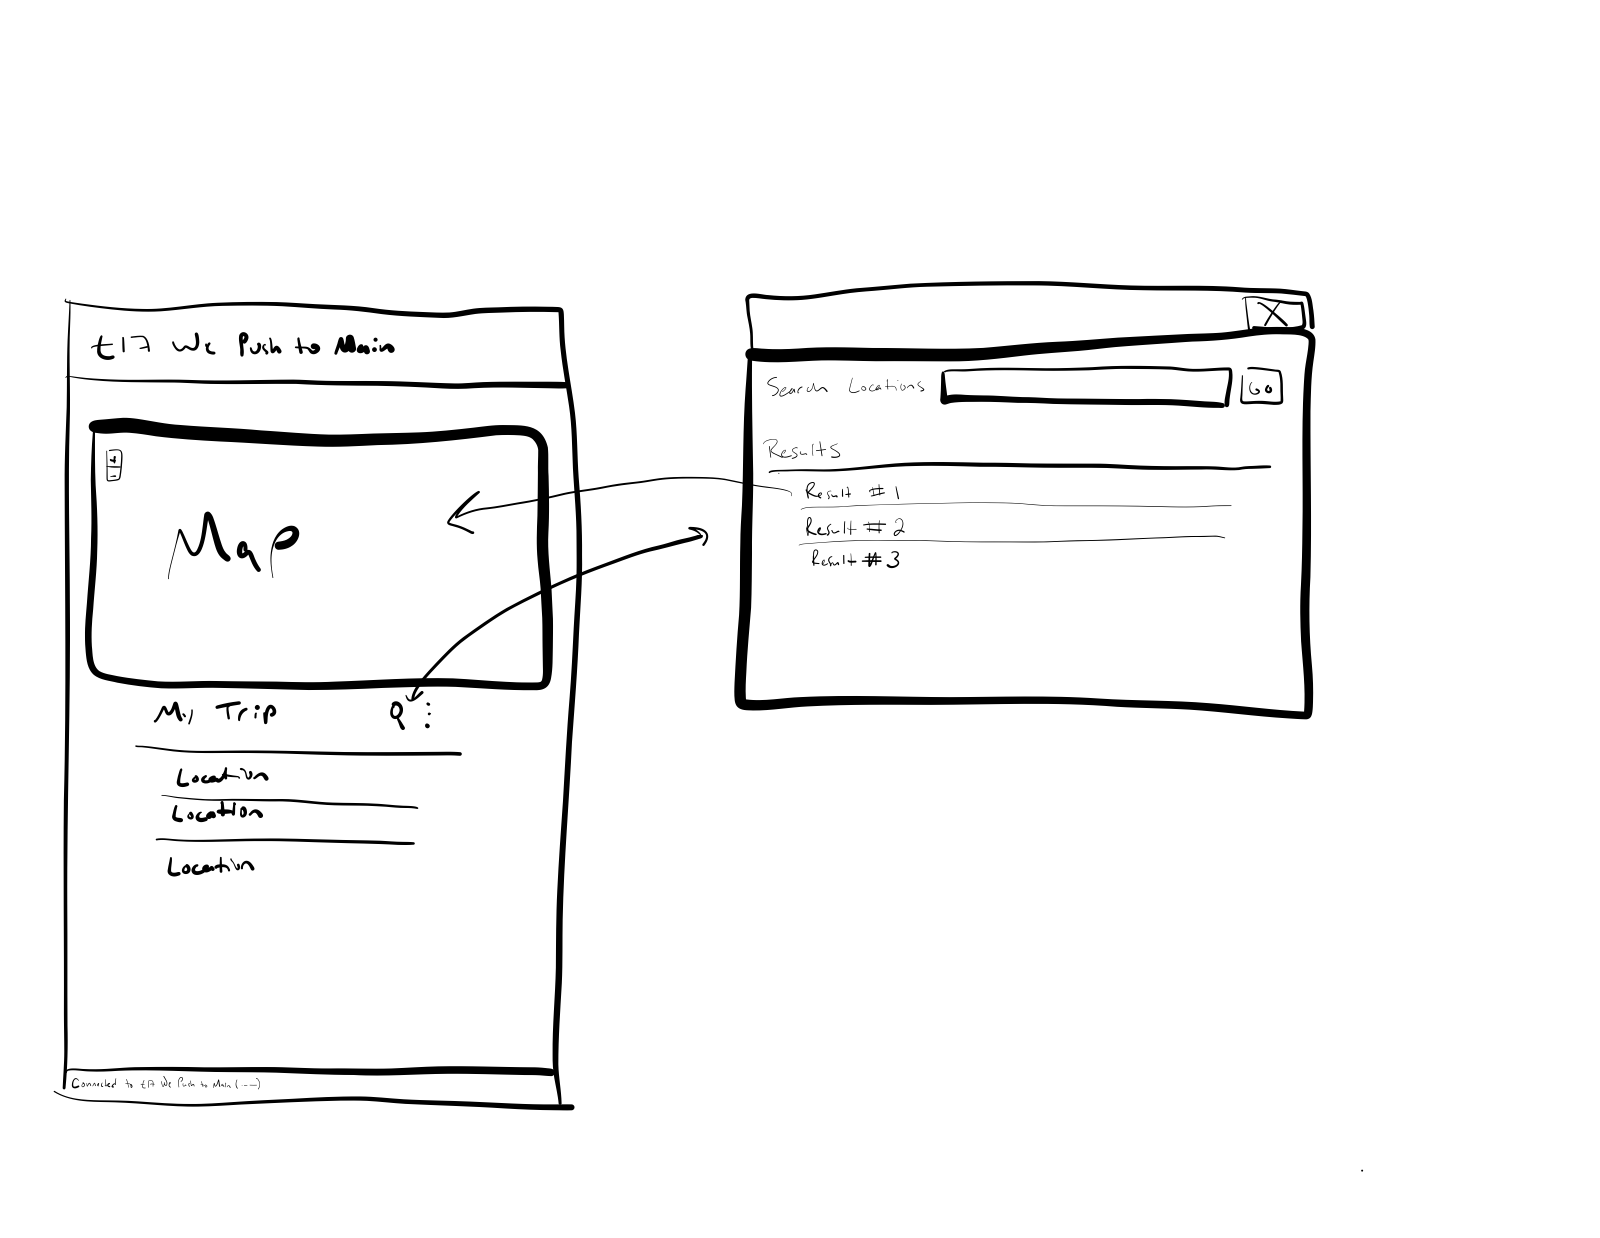 t17 We Push to Main
+
-
Map
My Trip
Location
Location
Location
Connected to t17 We Push to Main (----)
X
Search Locations
GO
Results
Result #1
Result #2
Result #3